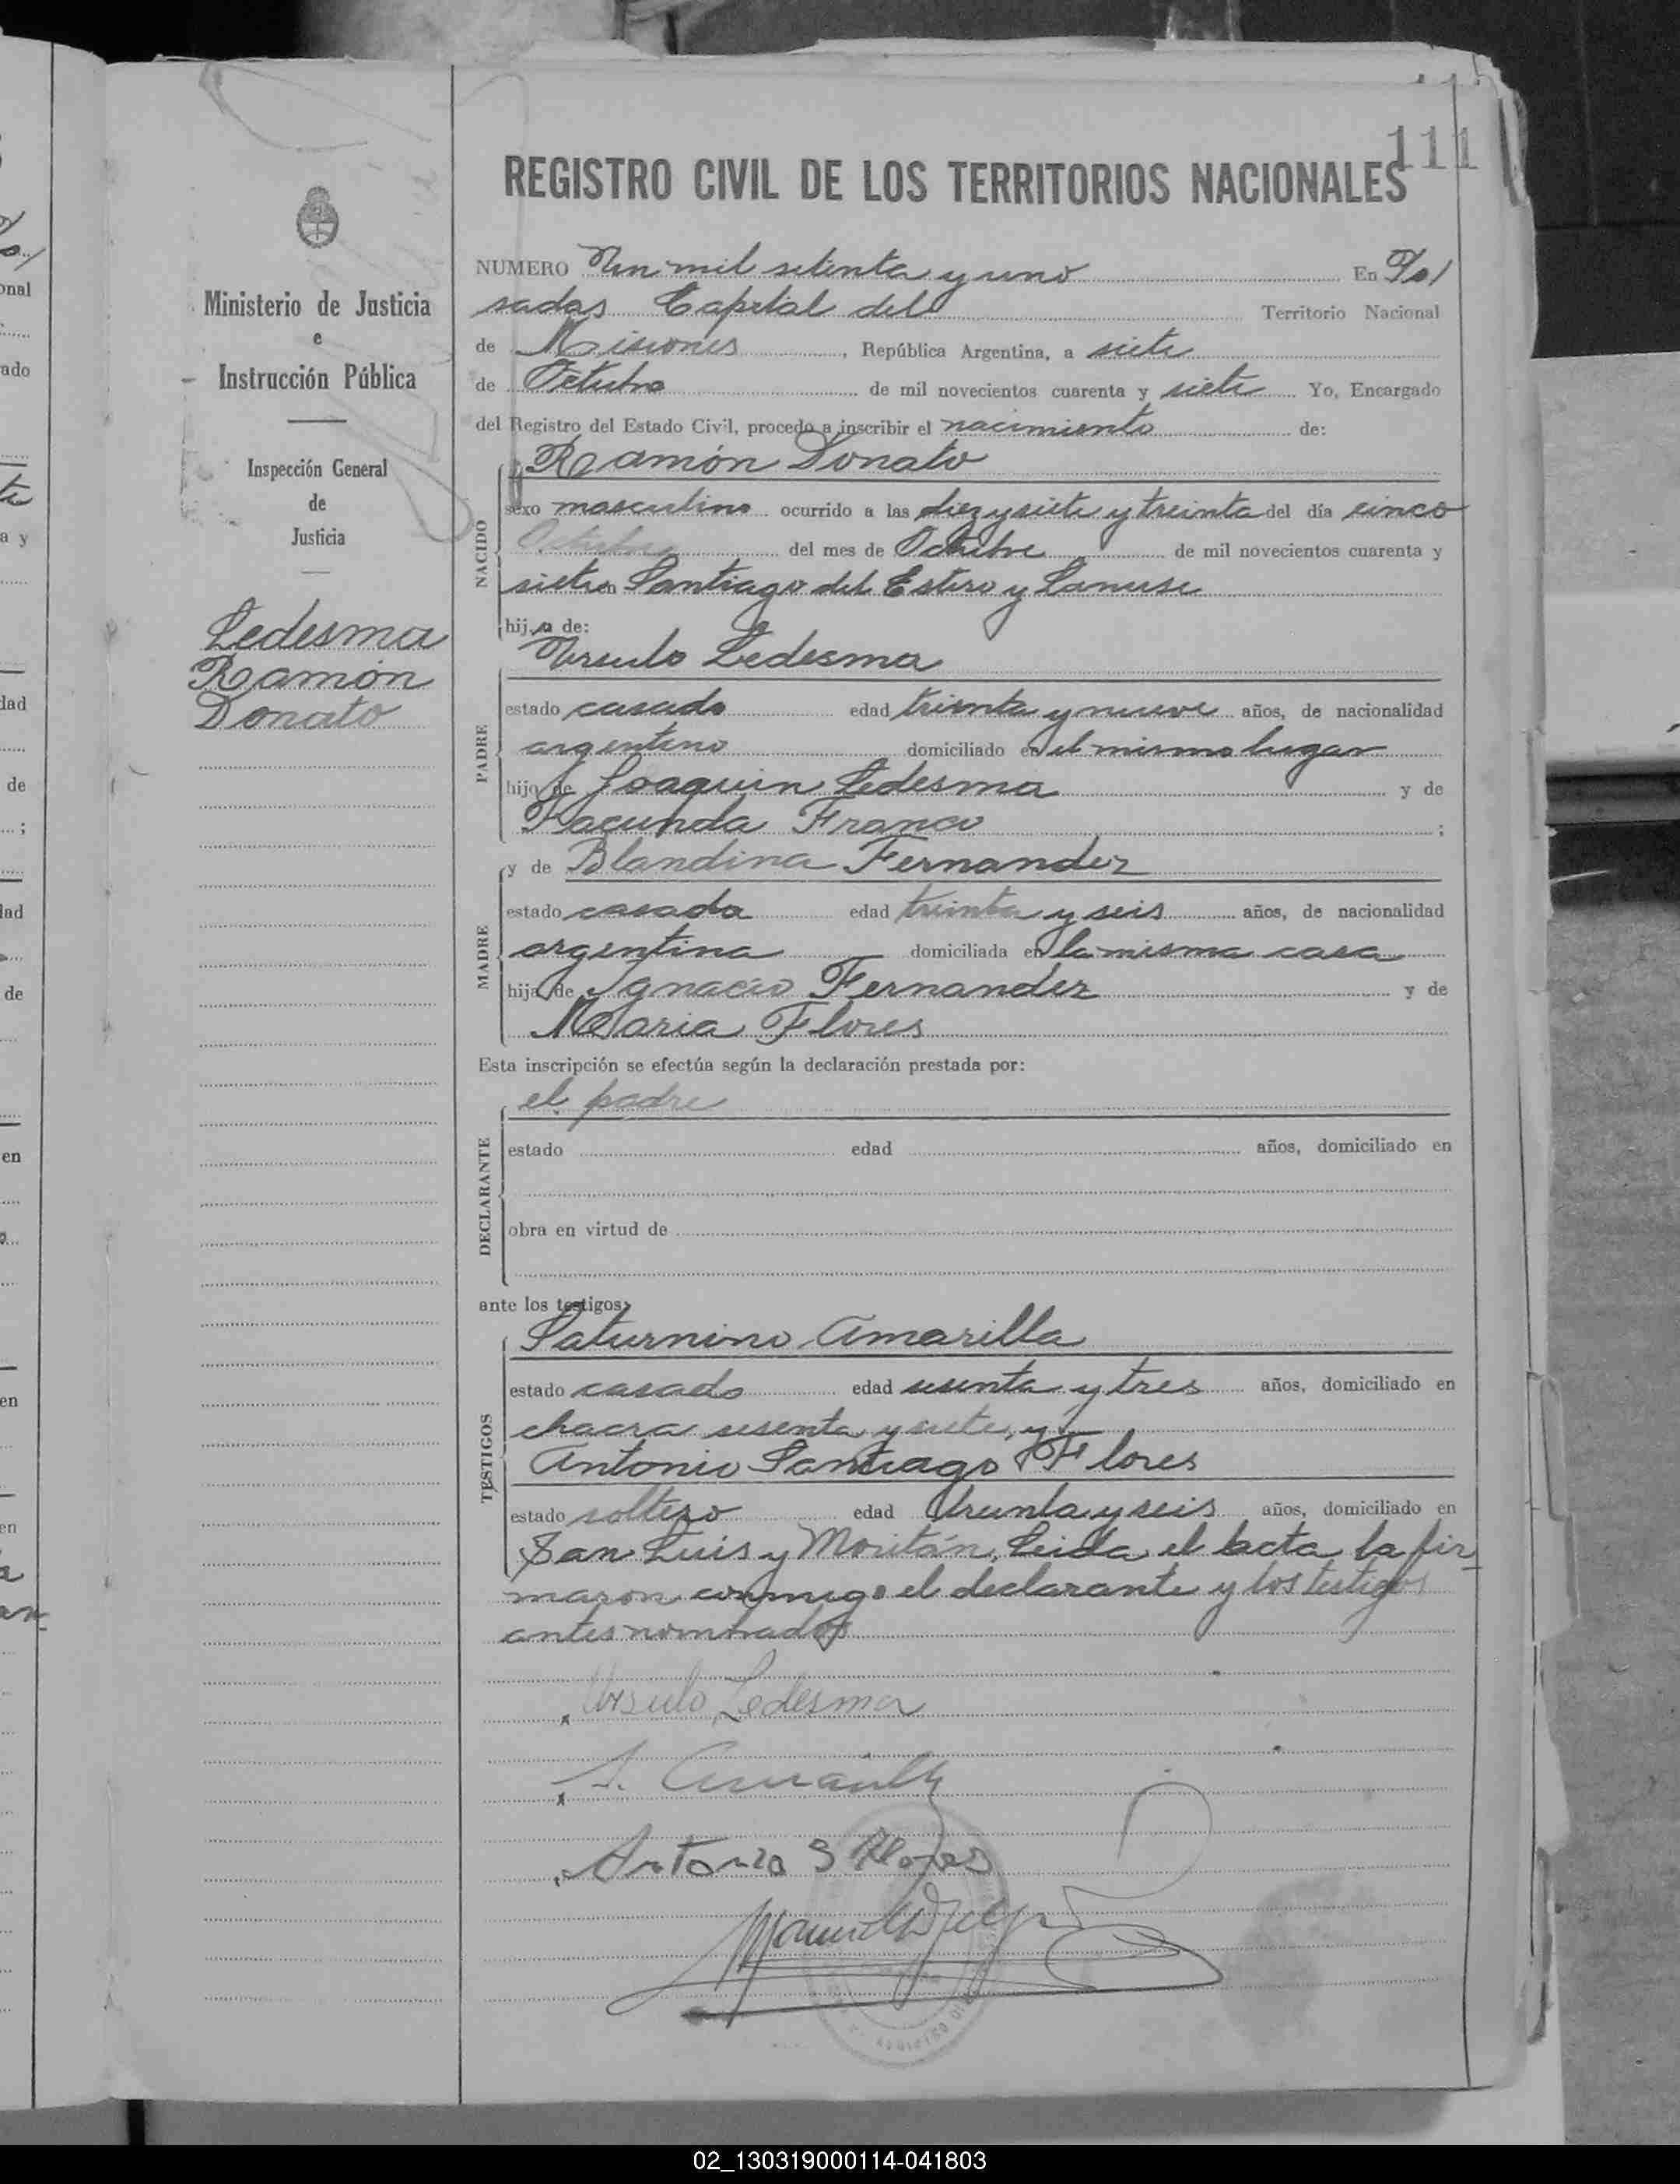 111
REGISTRO CIVIL DE LOS TERRITORIOS NACIONALES
Ministerio de Justicia
e
Instrucción Pública
Inspección General
de
Justicia
Ledesma
Ramón
Donato
NUMERO Un mil setenta y uno En Po/
sadas Capital del Territorio Nacional
de Misiones, República Argentina, a siete
de Octubre de mil novecientos cuarenta y siete Yo, Encargado
del Registro del Estado Civil, procedo a inscribir el nacimiento de:
Ramón Donato
NACIDO
sexo masculino ocurrido a las diez y siete y treinta del día cinco
Octubre del mes de Octubre de mil novecientos cuarenta y
siete en Santiago del Estero y Lanuse
hijo de:
Ursulo Ledesma
PADRE
estado casado edad treinta y nueve años, de nacionalidad
argentino domiciliado en el mismo lugar
hijo de Joaquin Ledesma y de
Facunda Franco ;
y de Blandina Fernandez
MADRE
estado casada edad treinta y seis años, de nacionalidad
argentina domiciliada en la misma casa
hija de Ignacio Fernandez y de
Maria Flores
Esta inscripción se efectúa según la declaración prestada por:
el padre
DECLARANTE
estado edad años, domiciliado en
obra en virtud de
ante los testigos:
Saturnino Amarilla
TESTIGOS
estado casado edad sesenta y tres años, domiciliado en
chacra sesenta y siete, y
Antonio Santiago Flores
estado soltero edad treinta y seis años, domiciliado en
San Luis y Moritán. Leida el acta la fir
maron conmigo el declarante y los testigos
antes nombrados
Ursulo Ledesma
S. Amarilla
Antonio S Flores
02_130319000114-041803